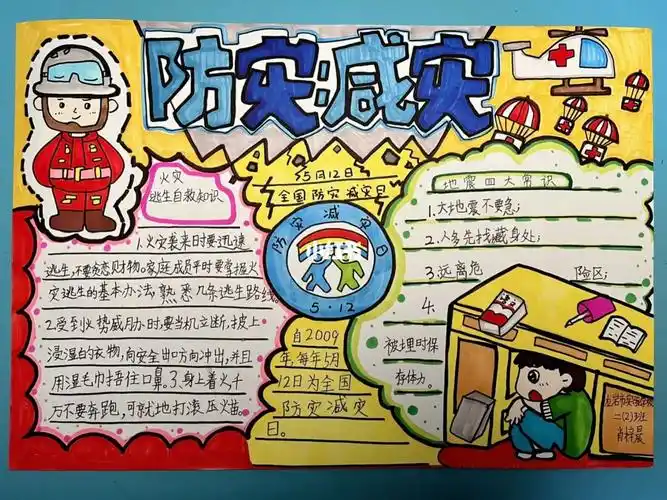 防灾减灾
火灾
逃生自救知识
1.火灾袭来时要迅速
逃生,不要贪恋财物。家庭成员平时要掌握火
灾逃生的基本办法,熟悉几条逃生路线
2.受到火势威胁时要当机立断,披上
浸湿的衣物,向安全出口方向冲出,并且
用湿毛巾捂住口鼻。3.身上着火千
万不要奔跑,可就地打滚压火苗。
5月12日
全国防灾减灾日
防灾减灾日
5·12
自2009
年,每年5月
12日为全国
防灾减灾
日。
地震四大常识
1.大地震不要急;
2.人多先找藏身处;
3.远离危 险区;
4.
被埋时保
存体力。
二(2)班